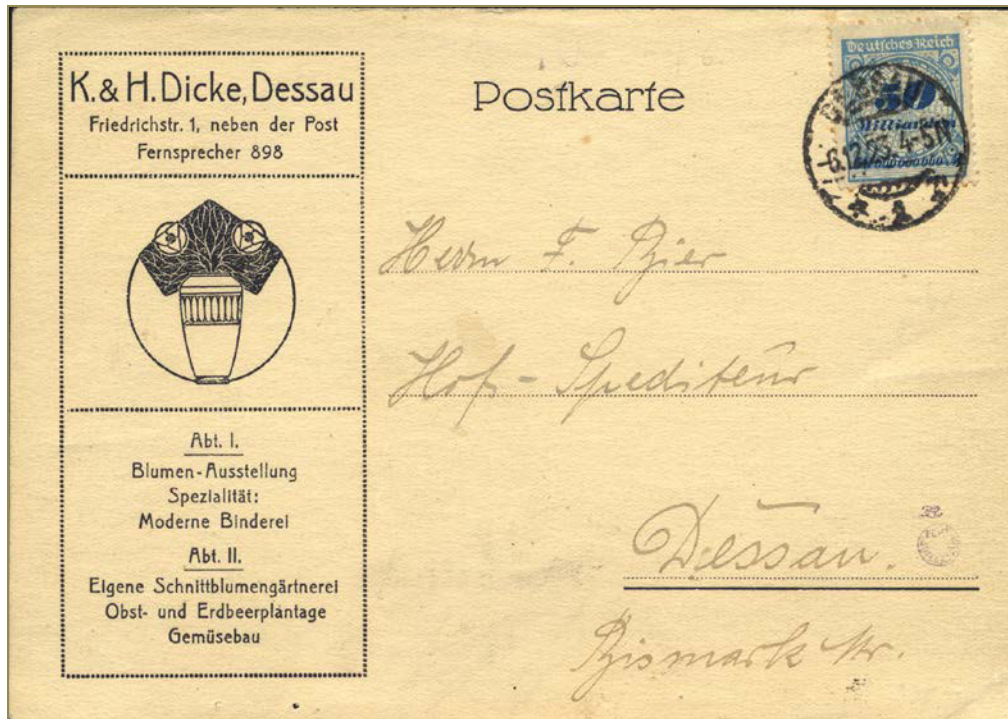 K. & H. Dicke, Dessau
Friedrichstr. 1, neben der Post
Fernsprecher 898
Abt. I.
Blumen-Ausstellung
Spezialität:
Moderne Binderei
Abt. II.
Eigene Schnittblumengärtnerei
Obst- und Erdbeerplantage
Gemüsebau
Postkarte
Deutsches Reich
50
Milliarden
DESSAU
-6.12.23. 4-5N
Herrn F. Bier
Hof-Spediteur
Dessau.
Bismark str.